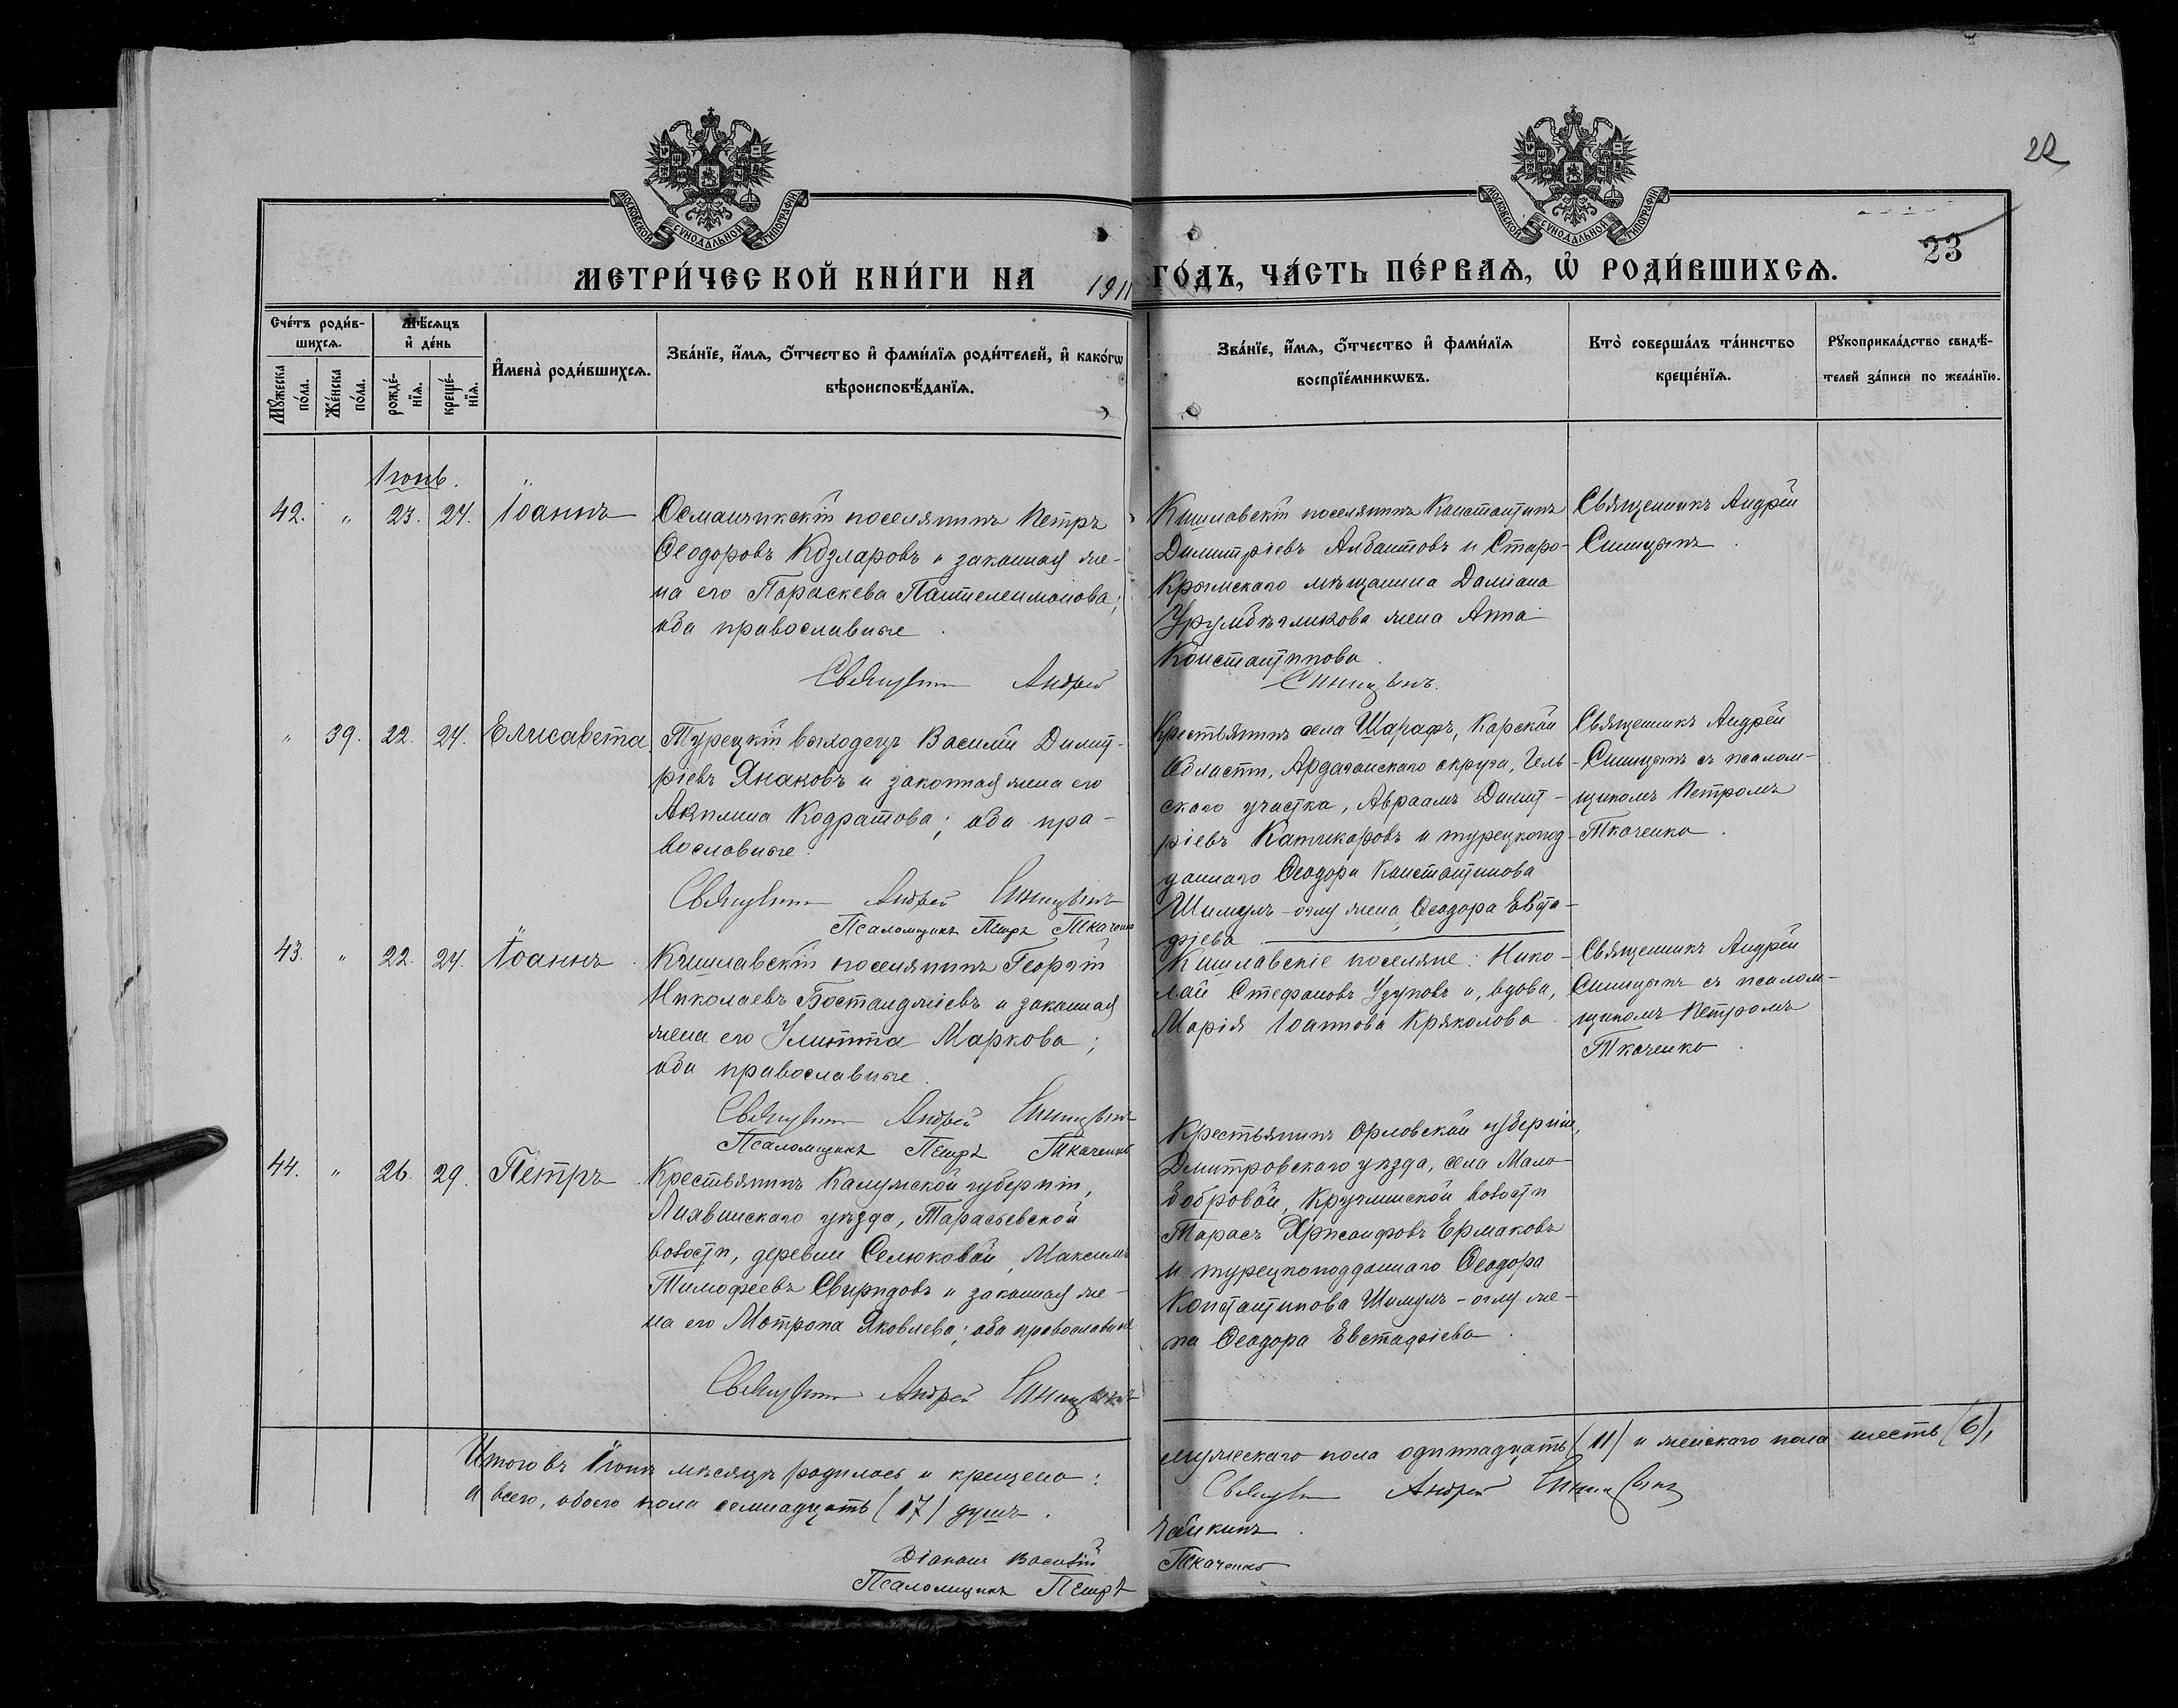 22
23
МОСКОВСКОЙ СѴНОДАЛЬНОЙ ТИПОГРАФІИ
МОСКОВСКОЙ СѴНОДАЛЬНОЙ ТИПОГРАФІИ
МЕТРИ́ЧЕСКОЙ КНИ́ГИ НА 1911 ГО́ДЪ, ЧА́СТЬ ПЕ́РВАѦ, Ѡ҆ РОДИ́ВШИХСѦ.
Сче́тъ роди́в-
шихсѧ.
Мꙋ́жеска по́ла.
Же́нска по́ла.
Мѣ́сѧцъ
и҆ де́нь
рожде́-
нїѧ.
креще́-
нїѧ.
И҆мена̀ роди́вшихсѧ.
Зва́нїе, и҆́мѧ, ѻ҆́тчество и҆ фами́лїѧ роди́телей, и҆ како́гѡ
вѣроисповѣ́данїѧ.
Зва́нїе, и҆́мѧ, ѻ҆́тчество и҆ фами́лїѧ
воспрїе́мникѡвъ.
Кто̀ соверша́лъ та́инство
креще́нїѧ.
Рꙋкоприкла́дство свидѣ́-
телей за́писи по жела́нїю.
Іюнь.
42. " 23. 24. Іоаннъ
Османчикскій поселянинъ Петръ
Ѳеодоровъ Козларовъ и законная же-
на его Параскева Пантелеимонова;
оба православные.
Священникъ Андрей Синицынъ.
Кишлавскій поселянинъ Константинъ
Димитріевъ Арбантовъ и Старо-
Крымскаго мѣщанина Даміана
жена Анна
Константинова.
Священникъ Андрей
Синицынъ.
" 39. 22. 24. Елисавета
Турецкій выходецъ Василій Димит-
ріевъ Янаковъ и законная жена его
Акилина Кодратова; оба пра-
вославные.
Священникъ Андрей Синицынъ
Псаломщикъ Петръ Ткаченко
Крестьянинъ села Шарафъ, Карской
Области, Ардаганскаго округа, Гель-
скаго участка, Авраамъ Димит-
ріевъ Качикаровъ и турецкопод-
даннаго Ѳеодора Константинова
Шимулъ-оглу жена Ѳеодора Евста-
фіева
Священникъ Андрей
Синицынъ съ псалом-
щикомъ Петромъ
Ткаченко.
43. " 22. 24. Іоаннъ.
Кишлавскій поселянинъ Георгій
Николаевъ Бостанджіевъ и законная
жена его Улитта Маркова;
оба православные.
Священникъ Андрей Синицынъ
Псаломщикъ Петръ Ткаченко
Кишлавскіе поселяне: Нико-
лай Стефановъ Узуновъ и, вдова,
Марія Іоаннова Кряколова.
Священникъ Андрей
Синицынъ съ псалом-
щикомъ Петромъ
Ткаченко.
44. " 26. 29. Петръ.
Крестьянинъ Калужской губерніи,
Лихвинскаго уѣзда, Тарасьевской
волости, деревни Селюковой, Максимъ
Тимофеевъ Свиридовъ и законная же-
на его Матрона Яковлева; оба православные
Священникъ Андрей Синицынъ
Крестьянинъ Орловской губерніи,
Дмитровскаго уѣзда, села Мало-
бобровой, Кружчинской волости
Тарасъ Хрисанфовъ Ермаковъ
и турецкоподданнаго Ѳеодора
Константинова Шимулъ-оглу же-
на Ѳеодора Евстафіева.
Итого въ Іюнѣ мѣсяцѣ родилось и крещено: мужескаго пола одиннадцать (11) и женскаго пола шесть (6),
а всего, обоего пола семнадцать (17) душъ.
Священникъ Андрей Синицынъ
Діаконъ Василій Чайкинъ.
Псаломщикъ Петръ Ткаченко